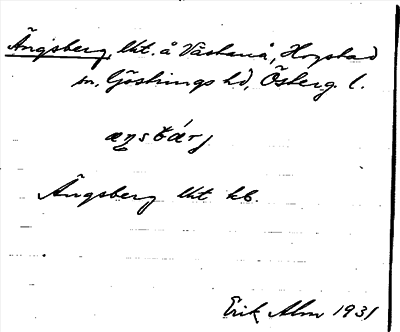 Ängsberg, lht. å Västanå, Hogstad
sn, Göstrings hd, Österg. l.
æŋsbárj
Ängsberg lht kb.
Erik Alm 1931